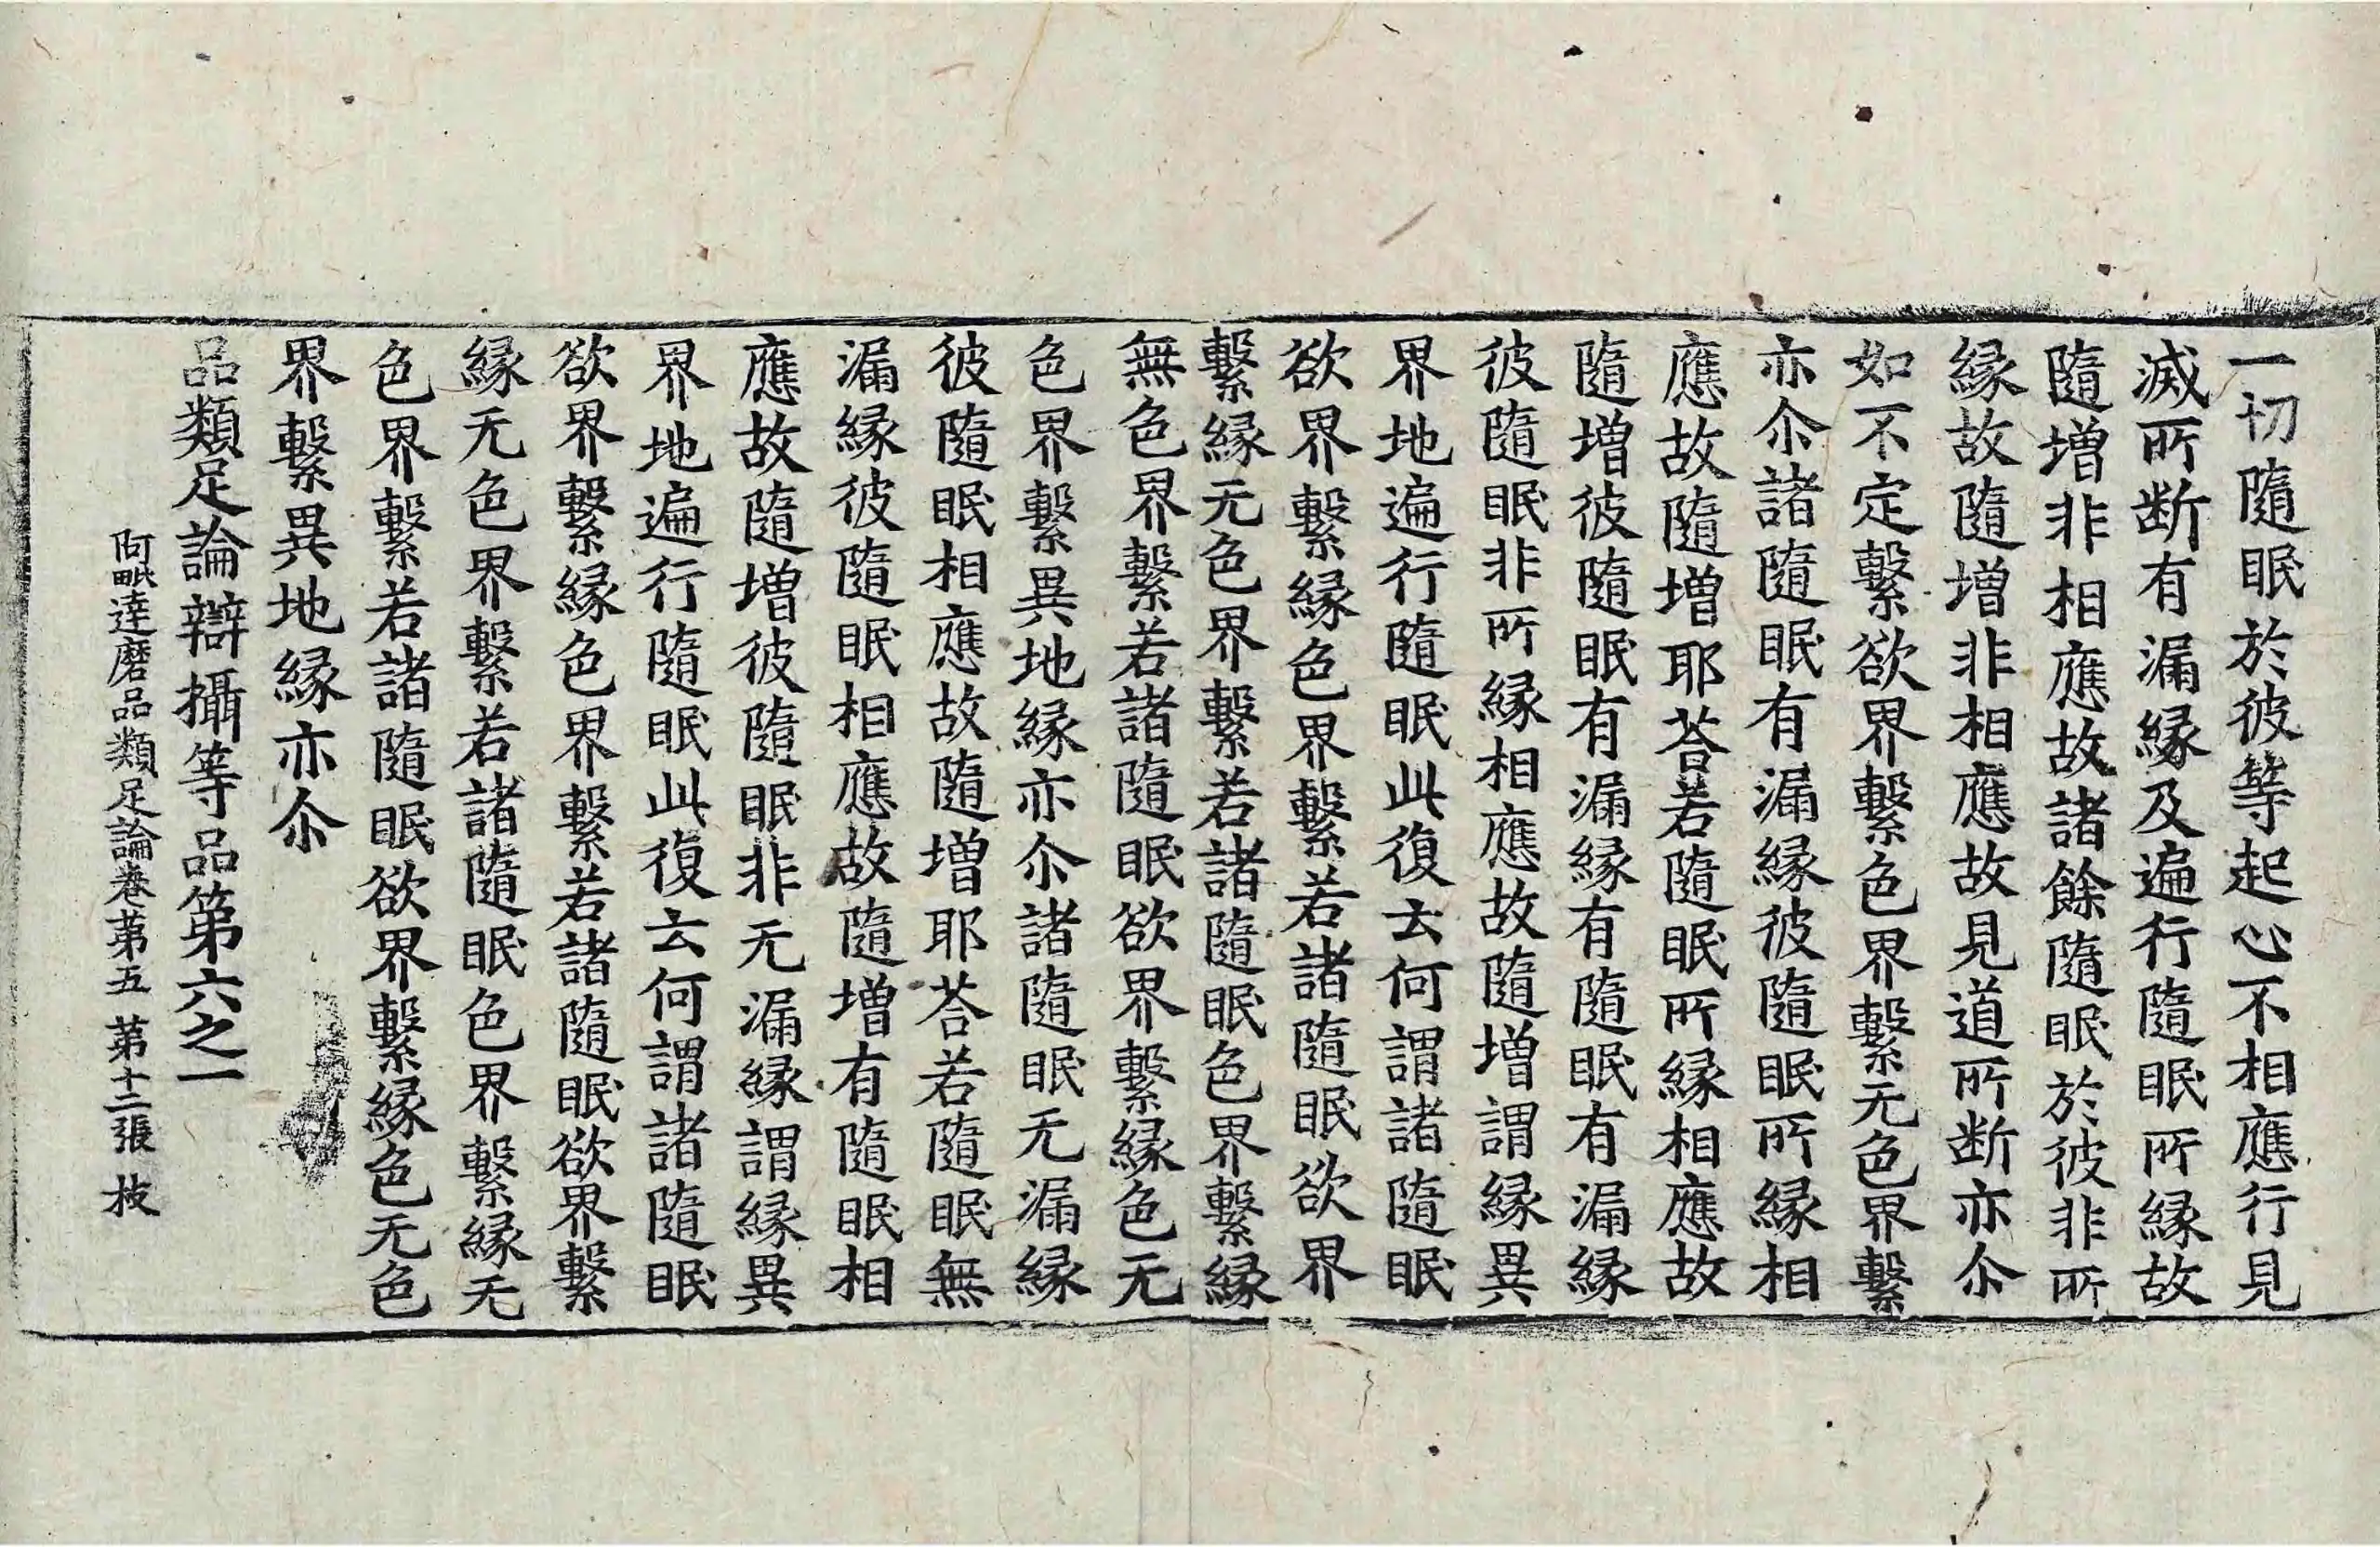 一切隨眠於彼等起心不相應行見
滅所断有漏緣及遍行隨眠所緣故
隨增非相應故諸餘隨眠於彼非所
緣故隨增非相應故見道所断亦尒
如不定繫欲界繫色界繫无色界繫
亦尒諸隨眠有漏緣彼隨眠所緣相
應故隨增耶荅若隨眠所緣相應故
隨增彼隨眠有漏緣有隨眠有漏緣
彼隨眠非所緣相應故隨增謂緣異
界地遍行隨眠此復云何謂諸隨眠
欲界繫緣色界繫若諸隨眠欲界
繫緣无色界繫若諸隨眠色界繫緣
無色界繫若諸隨眠欲界繫緣色无
色界繫異地緣亦尒諸隨眠无漏緣
彼隨眠相應故隨增耶荅若隨眠無
漏緣彼隨眠相應故隨增有隨眠相
應故隨增彼隨眠非无漏緣謂緣異
界地遍行隨眠此復云何謂諸隨眠
欲界繫緣色界繫若諸隨眠欲界繫
緣无色界繫若諸隨眠色界繫緣无
色界繫若諸隨眠欲界繫緣色无色
界繫異地緣亦尒
品類足論辯攝等品第六之一
阿毗達磨品類足論卷苐五 苐十二張 枝